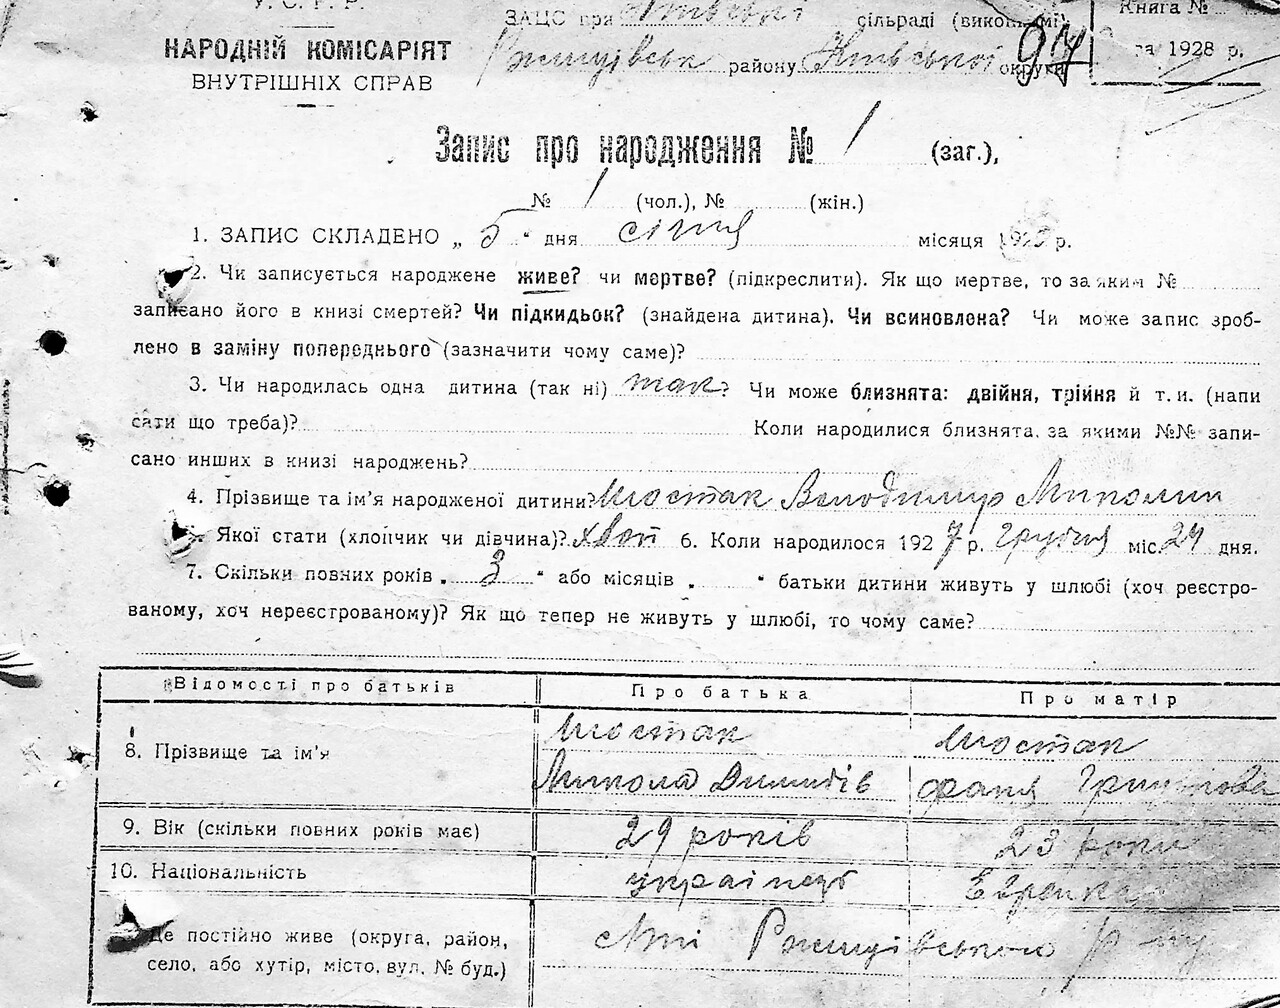 У. С. Р. Р.
НАРОДНІЙ КОМІСАРІЯТ
ВНУТРІШНІХ СПРАВ
ЗАЦС при сільраді (виконкомі)
Ржищівськ району Київської округи
97
Книга №
за 1928 р.
Запис про народження № 1 (заг.),
№ 1 (чол.), № (жін.)
1. ЗАПИС СКЛАДЕНО „ 5 “ дня січня місяця 1928 р.
2. Чи записується народжене живе? чи мертве? (підкреслити). Як що мертве, то за яким №
записано його в книзі смертей? Чи підкидьок? (знайдена дитина). Чи всиновлена? Чи може запис зроб-
лено в заміну попереднього (зазначити чому саме)?
3. Чи народилась одна дитина (так ні) так? Чи може близнята: двійня, трійня й т. и. (напи
сати що треба)? Коли народилися близнята, за якими №№ запи-
сано инших в книзі народжень?
4. Прізвище та ім’я народженої дитини? Шостак Володимир Миколин
Якої стати (хлопчик чи дівчина)? хлоп 6. Коли народилося 1927 р. грудня міс. 24 дня.
7. Скільки повних років „ 3 “ або місяців „ “ батьки дитини живуть у шлюбі (хоч реєстро-
ваному, хоч нереєстрованому)? Як що тепер не живуть у шлюбі, то чому саме?
Відомості про батьків Про батька Про матір
8. Прізвище та ім’я Шостак Шостак
Микола Фаня
9. Вік (скільки повних років має) 29 років 23 роки
10. Національність українець Еврейка
Де постійно живе (округа, район, Ржищівського р-ну
село, або хутір, місто, вул. № буд.)